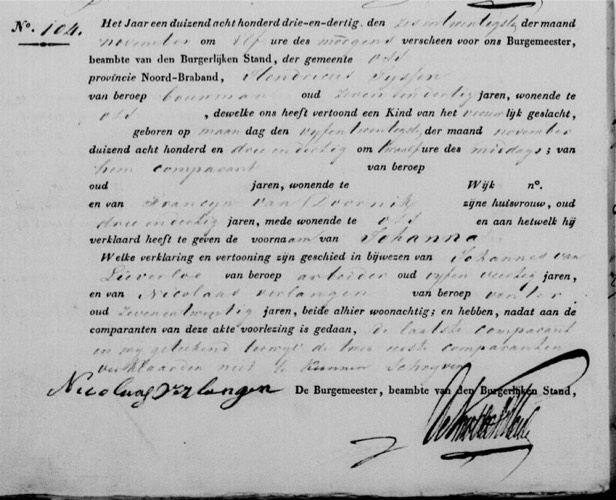 No. 104. Het Jaar een duizend acht honderd drie-en-dertig, den zesentwintigste der maand
november om elf ure des morgens verscheen voor ons Burgemeester,
beambte van den Burgerlijken Stand, der gemeente Oss
provincie Noord-Braband, Hendricus Tyssen
van beroep bouwman oud zevenendertig jaren, wonende te
Oss , dewelke ons heeft vertoond een Kind van het vrouwlijk geslacht,
geboren op maan dag den vyfentwintigste, der maand november
duizend acht honderd en drie en dertig om twaalf ure des middags; van
hem comparant van beroep
oud jaren, wonende te Wijk no.
en van Francyn van Doornik zijne huisvrouw, oud
drie en dertig jaren, mede wonende te Oss en aan hetwelk hij
verklaard heeft te geven de voornaam van Johanna
Welke verklaring en vertooning zijn geschied in bijwezen van Johannes van
Lieverloo van beroep arbeider oud vyfen veertig jaren,
en van Nicolaas verlangen van beroep
oud zevenentwintig jaren, beide alhier woonachtig; en hebben, nadat aan de
comparanten van deze akte voorlezing is gedaan, de laatste comparant
en my getekend terwyl de twee eerste comparanten
verklaarden niet te kunnen schryven
Nicolaas Verlangen De Burgemeester, beambte van den Burgerlijken Stand,